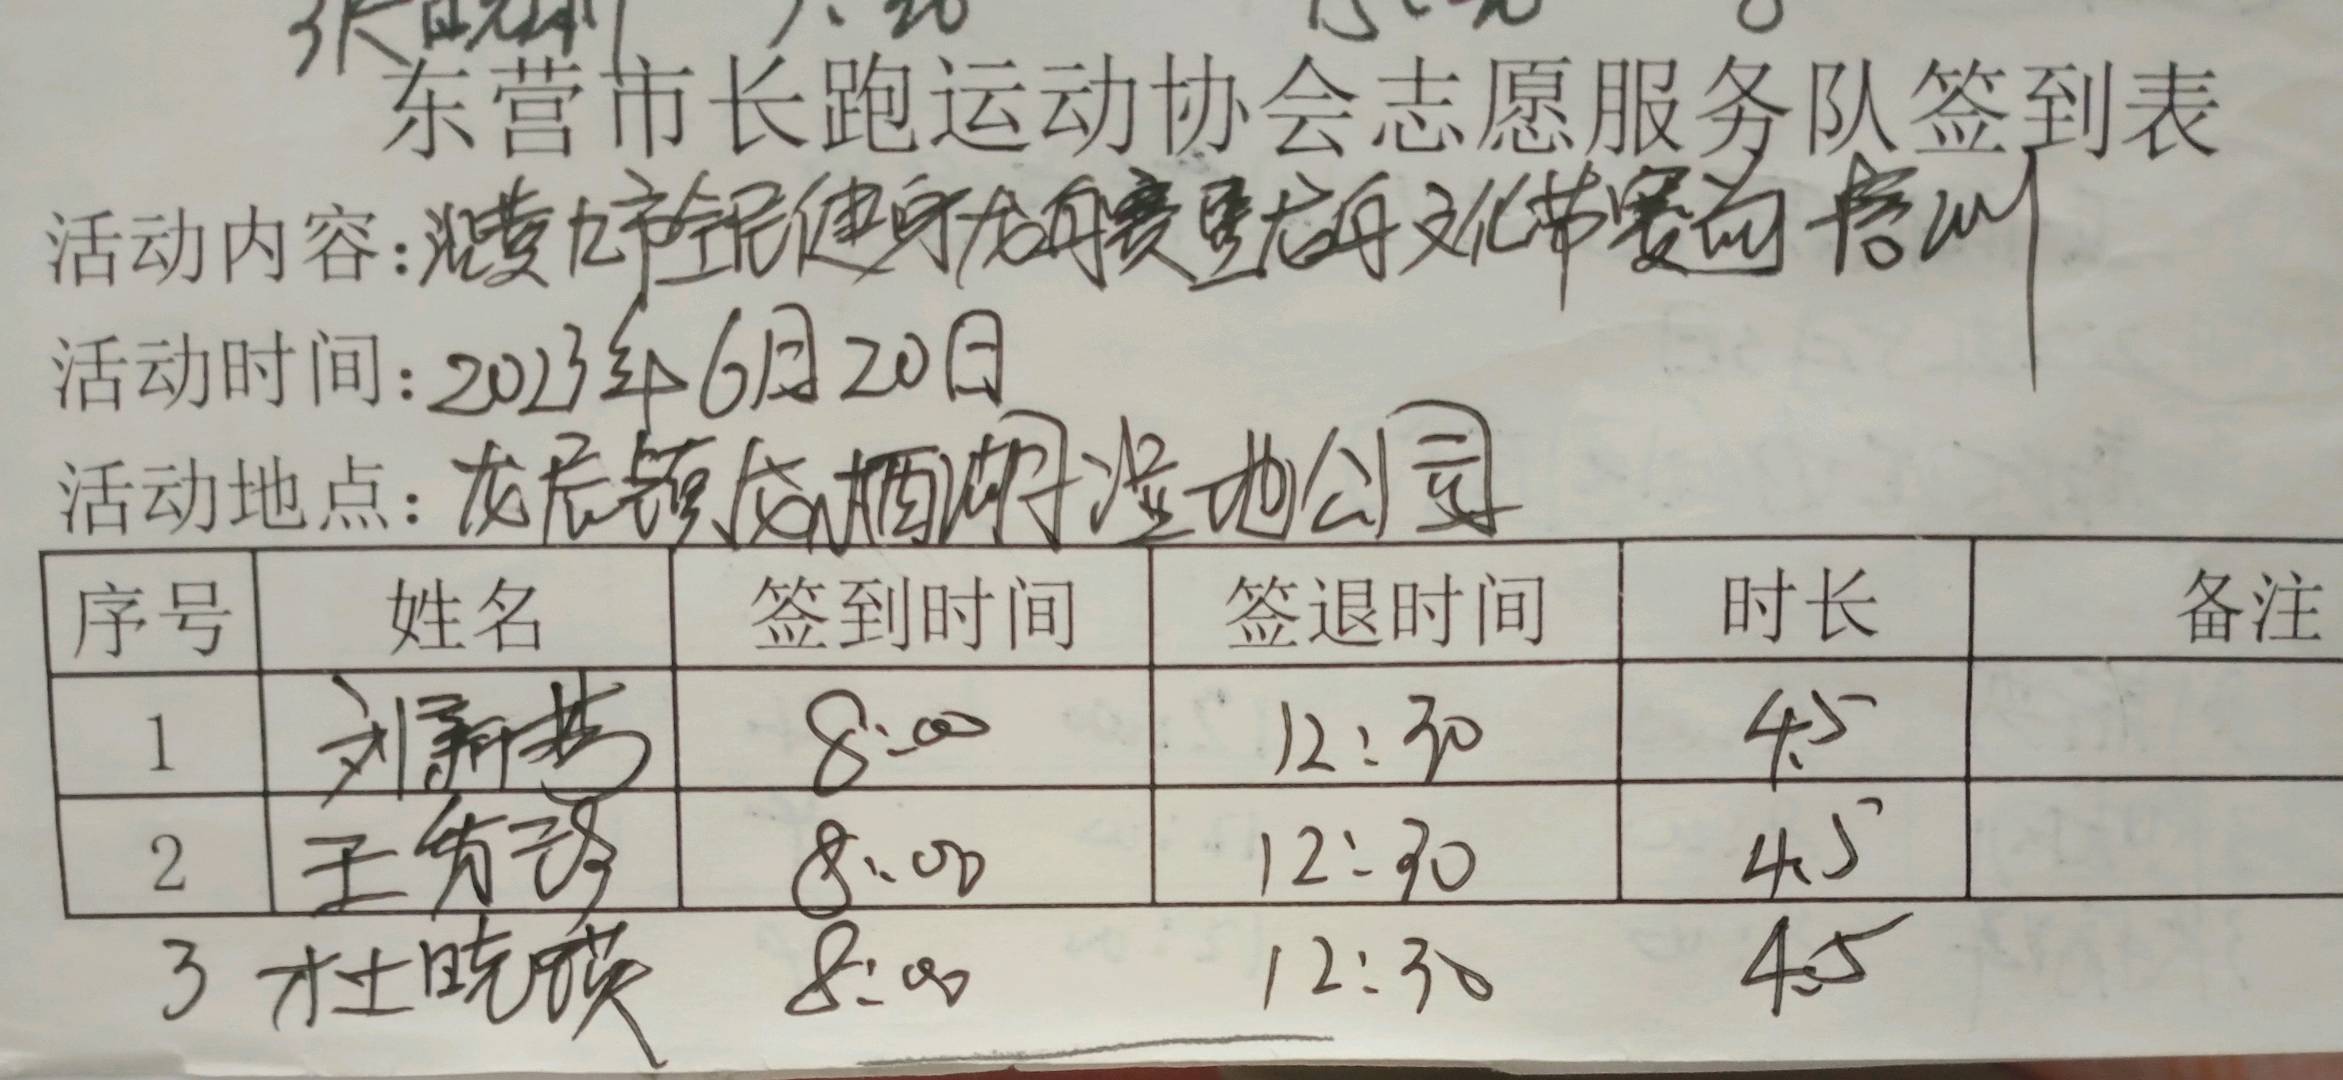 东营市长跑运动协会志愿服务队签到表
活动内容:市全民健身龙舟赛暨龙舟文化节赛前培训
活动时间:2023年6月20日
活动地点:龙居镇龙栖湖湿地公园
序号 姓名 签到时间 签退时间 时长 备注
1 刘新 8:00 12:30 4.5
2 王秀 8:00 12:30 4.5
3 杜晓瑛 8:00 12:30 4.5